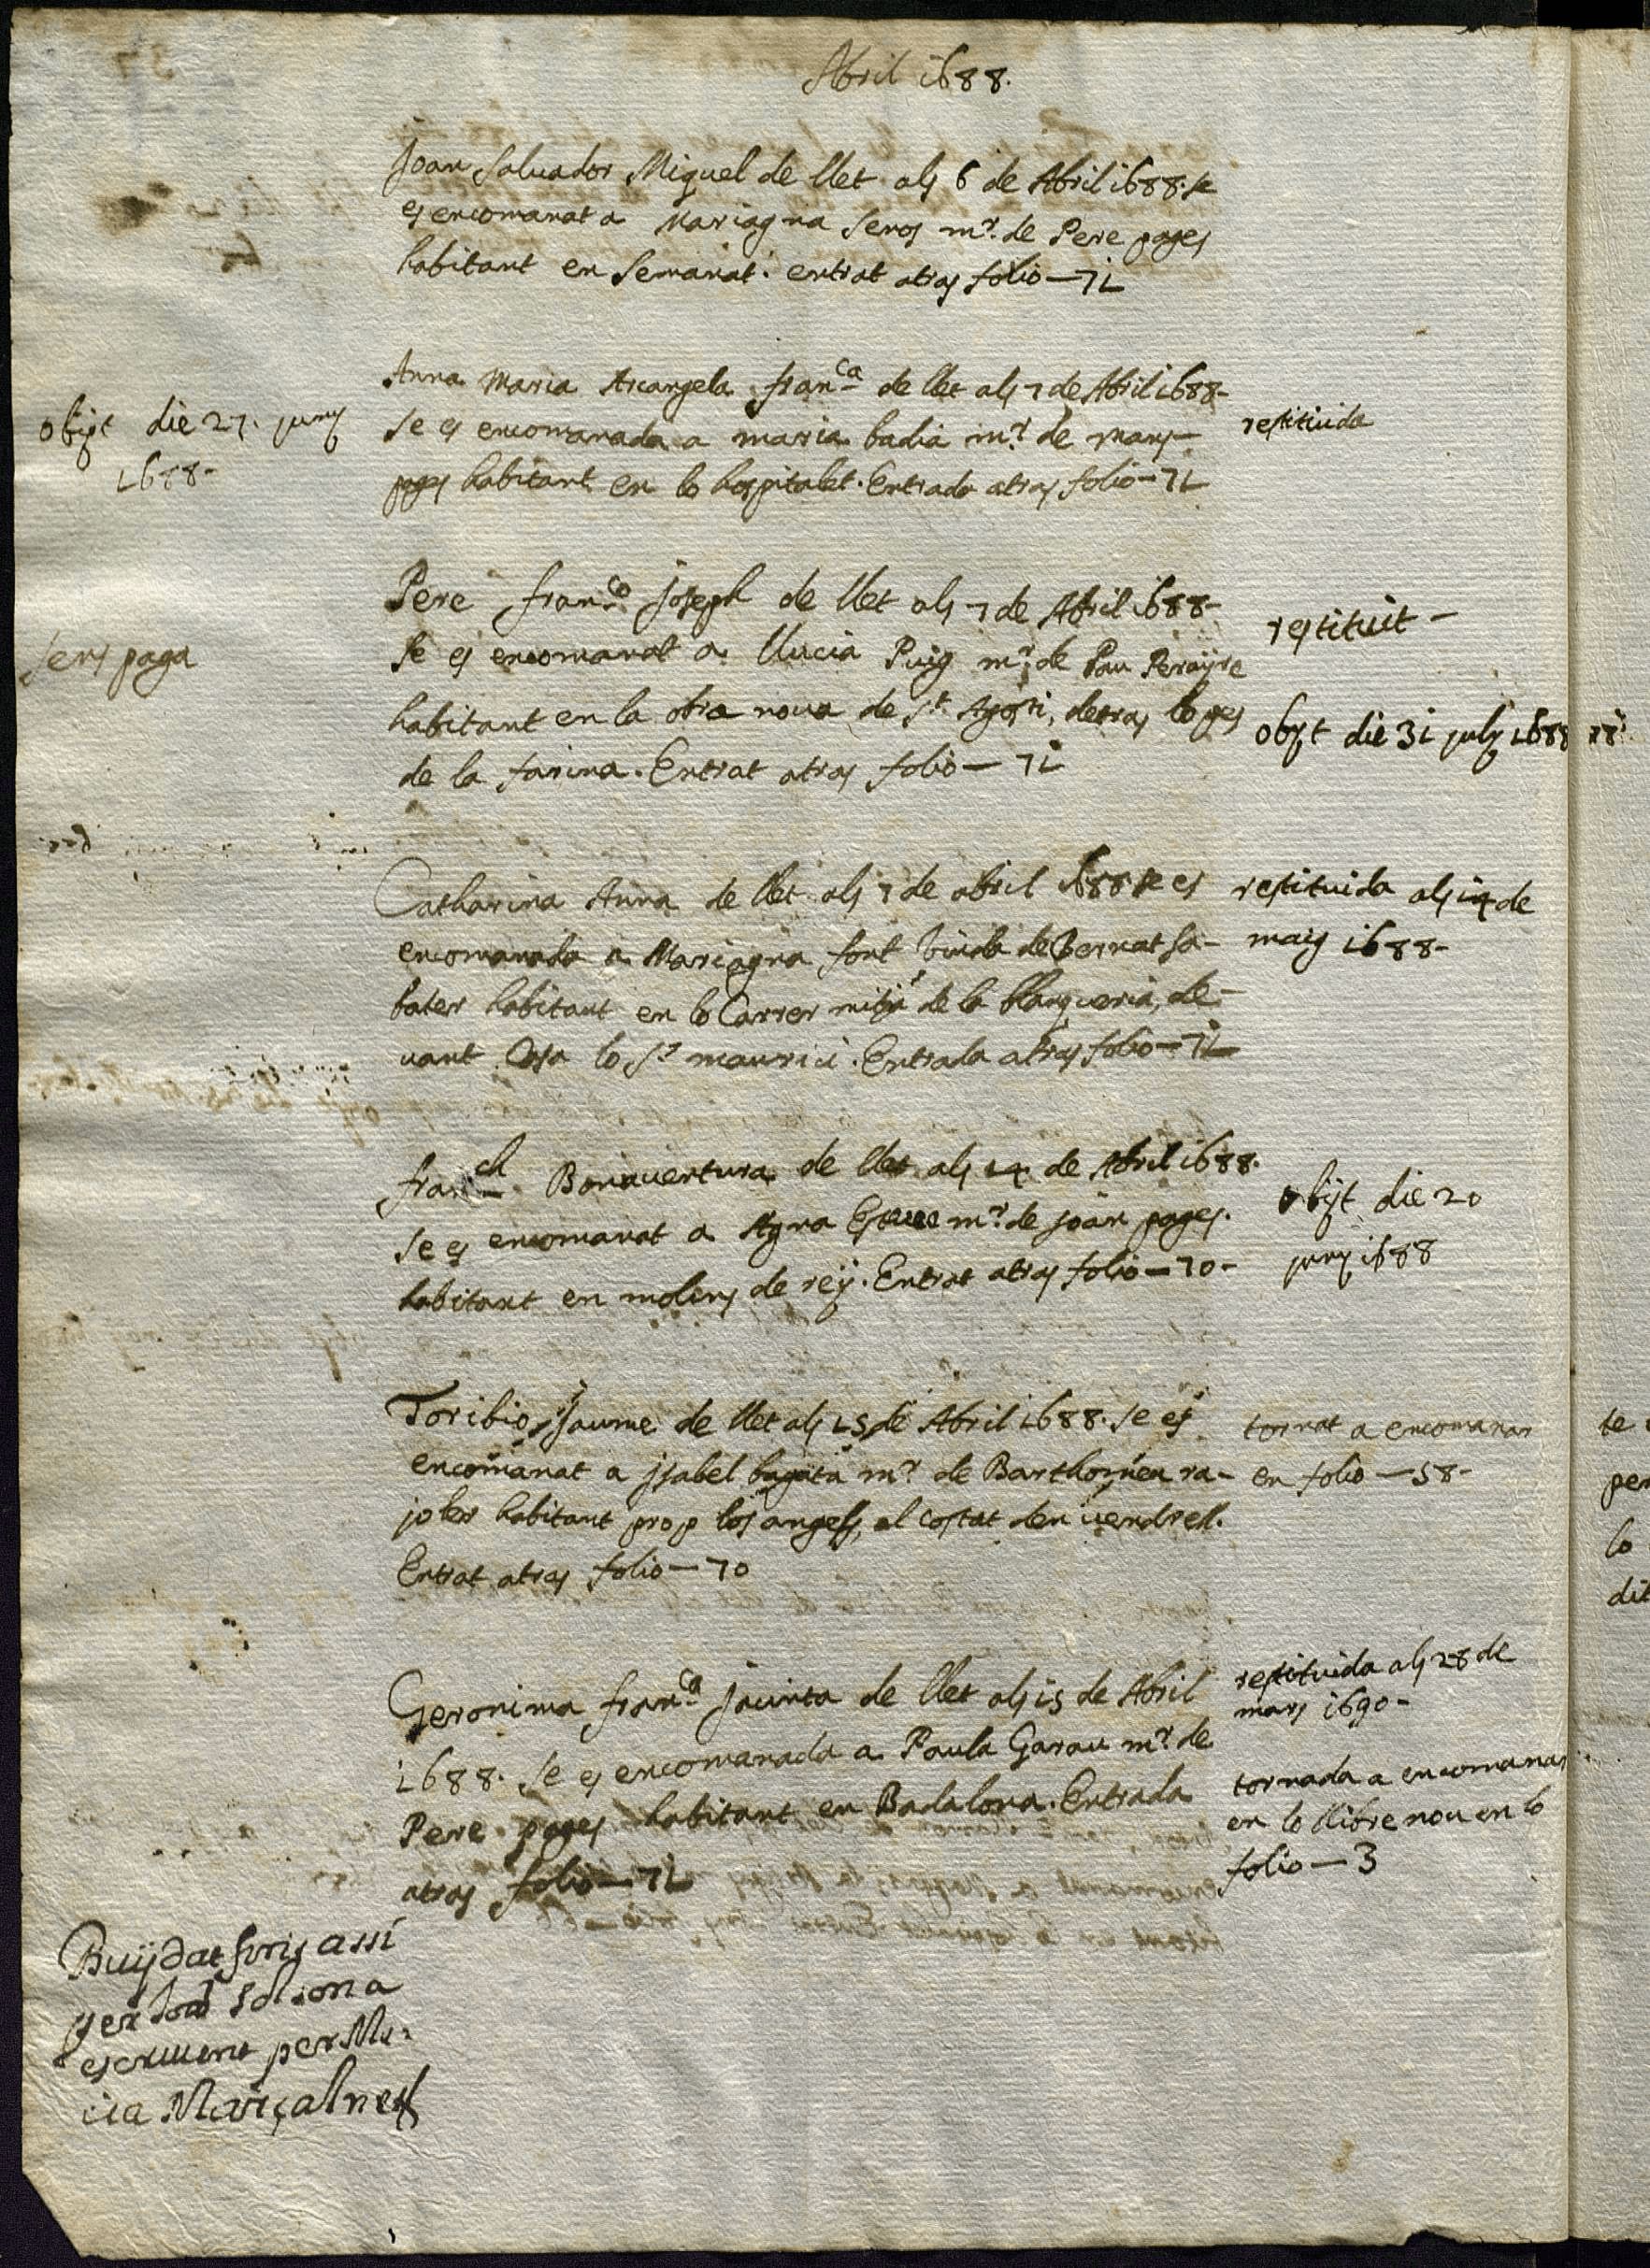 Abril 1688.
Joan Salvador Miquel de llet als 6 de Abril 1688. se
es encomanat a Mariagna Seros mr. de Pere pages
habitant en Semanat. entrat atras folio—71
Anna Maria Arcangela franca de llet als 7 de Abril 1688-
se es encomanada a maria badia mr. de mars-
pages habitant en lo hospitalet. Entrada atras folio—71
obijt die 27. juny
1688-
restituida
Pere franco Joseph de llet als 7 de Abril 1688-
Se es encomanat a llucia Puig mr. de Pau Perayre
habitant en la obra nova de St. Agosti, detras lo pes
de la farina. Entrat atras folio—71
sens paga
restituit-
obijt die 31 july 1688
Catharina Anna de llet als 7 de abril 1688 se es
encomanada a Mariagna font viuda de Bernat sa-
bater habitant en lo Carrer mitja de la blanqueria, de-
vant Casa lo Sr maurici. Entrada atras folio—71
restituida als 14 de
maig 1688-
franch Bonaventura de llet als 14 de Abril 1688.
se es encomanat a Agna Esteve mr. de joan pages.
habitant en molins de rey. Entrat atras folio—70-
obijt die 20
juny 1688
Toribio, Jaume de llet als 15 de Abril 1688. se es
encomanat a Isabel mr. de Barthomeu ra-
joler habitant prop los angels, al costat den vendrell.
Entrat atras folio—70
tornat a encomanar
en folio—58-
Geronima franca Jacinta de llet als 15 de Abril
1688. Se es encomanada a Paula Garau mr. de
Pere pages habitant en Badalona. Entrada
atras folio—71
restituida als 28 de
mars 1690-
tornada a encomanar
en lo llibre nou en lo
folio—3
Buydat fins assi
per Solsona
escrivent per Mi-
cia Marçal nesf